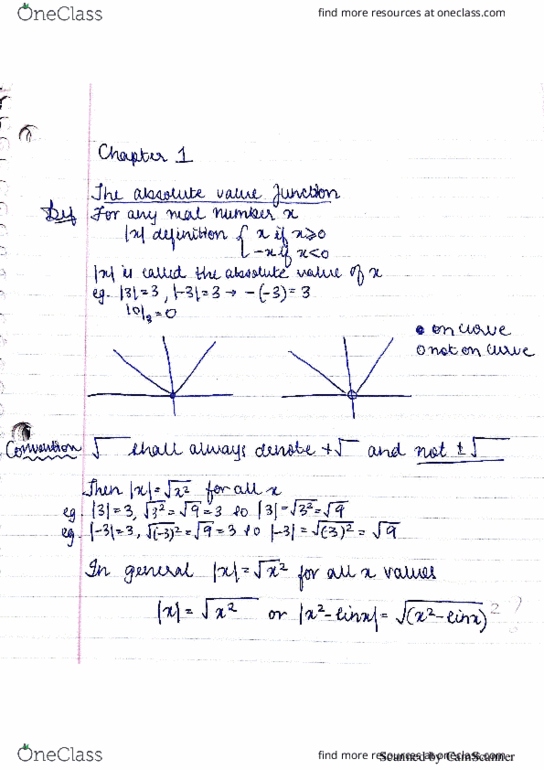 OneClass
find more resources at oneclass.com
Chapter 1
The absolute value function
Def For any real number x
|x| definition { x if x≥0
-x if x<0
|x| is called the absolute value of x
eg. |3|=3, |-3|=3 → -(-3)=3
|0|=0
● on curve
○ not on curve
Convention √ shall always denote +√ and not ±√
Then |x|=√x² for all x
eg |3|=3, √3²=√9=3 so |3|=√3²=√9
eg. |-3|=3, √(-3)²=√9=3 so |-3|=√(3)²=√9
In general |x|=√x² for all x values
|x|=√x² or |x²-sinx|=√(x²-sinx)² ?
OneClass
find more resources at oneclass.com
Scanned by CamScanner